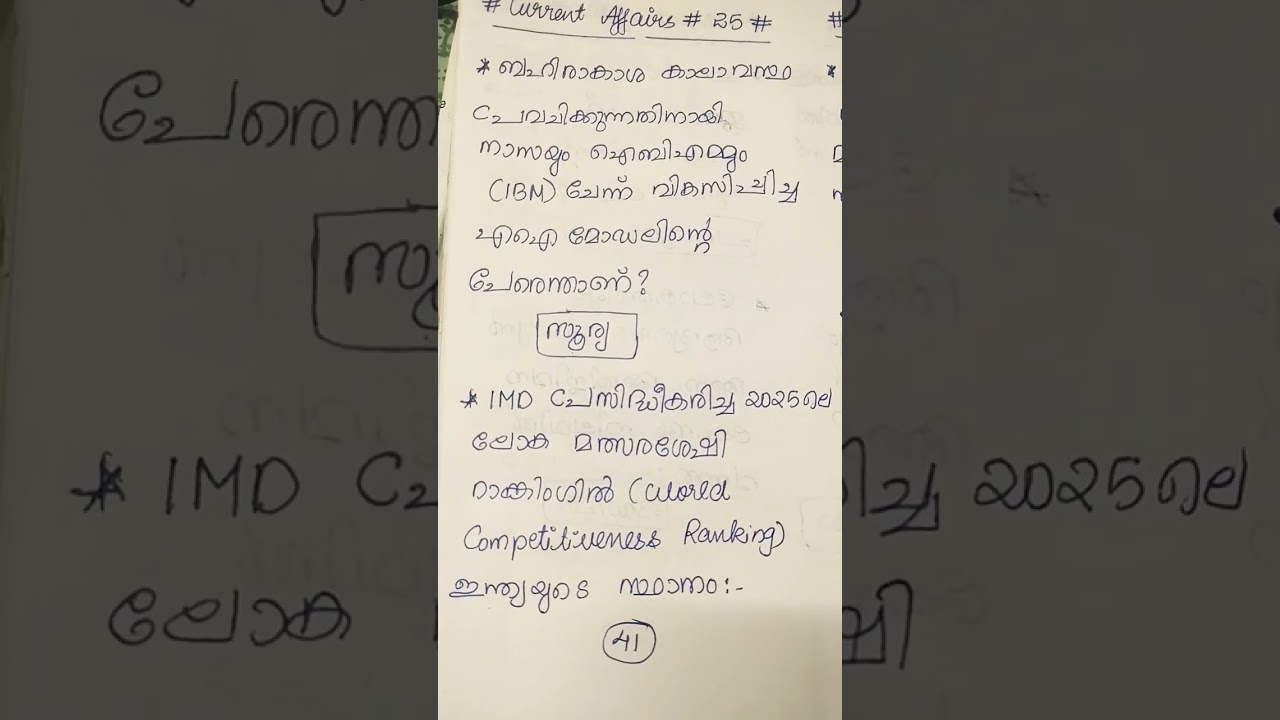 # Current Affairs # 25 #
* ബഹിരാകാശ കാലാവസ്ഥ
പ്രവചിക്കുന്നതിനായി
നാസയും ഐബിഎമ്മും
(IBM) ചേർന്ന് വികസിപ്പിച്ച
എഐ മോഡലിന്റെ
പേരെന്താണ്?
സൂര്യ
* IMD പ്രസിദ്ധീകരിച്ച 2025 ലെ
ലോക മത്സരശേഷി
റാങ്കിംഗിൽ (World
Competitiveness Ranking)
ഇന്ത്യയുടെ സ്ഥാനം :-
41